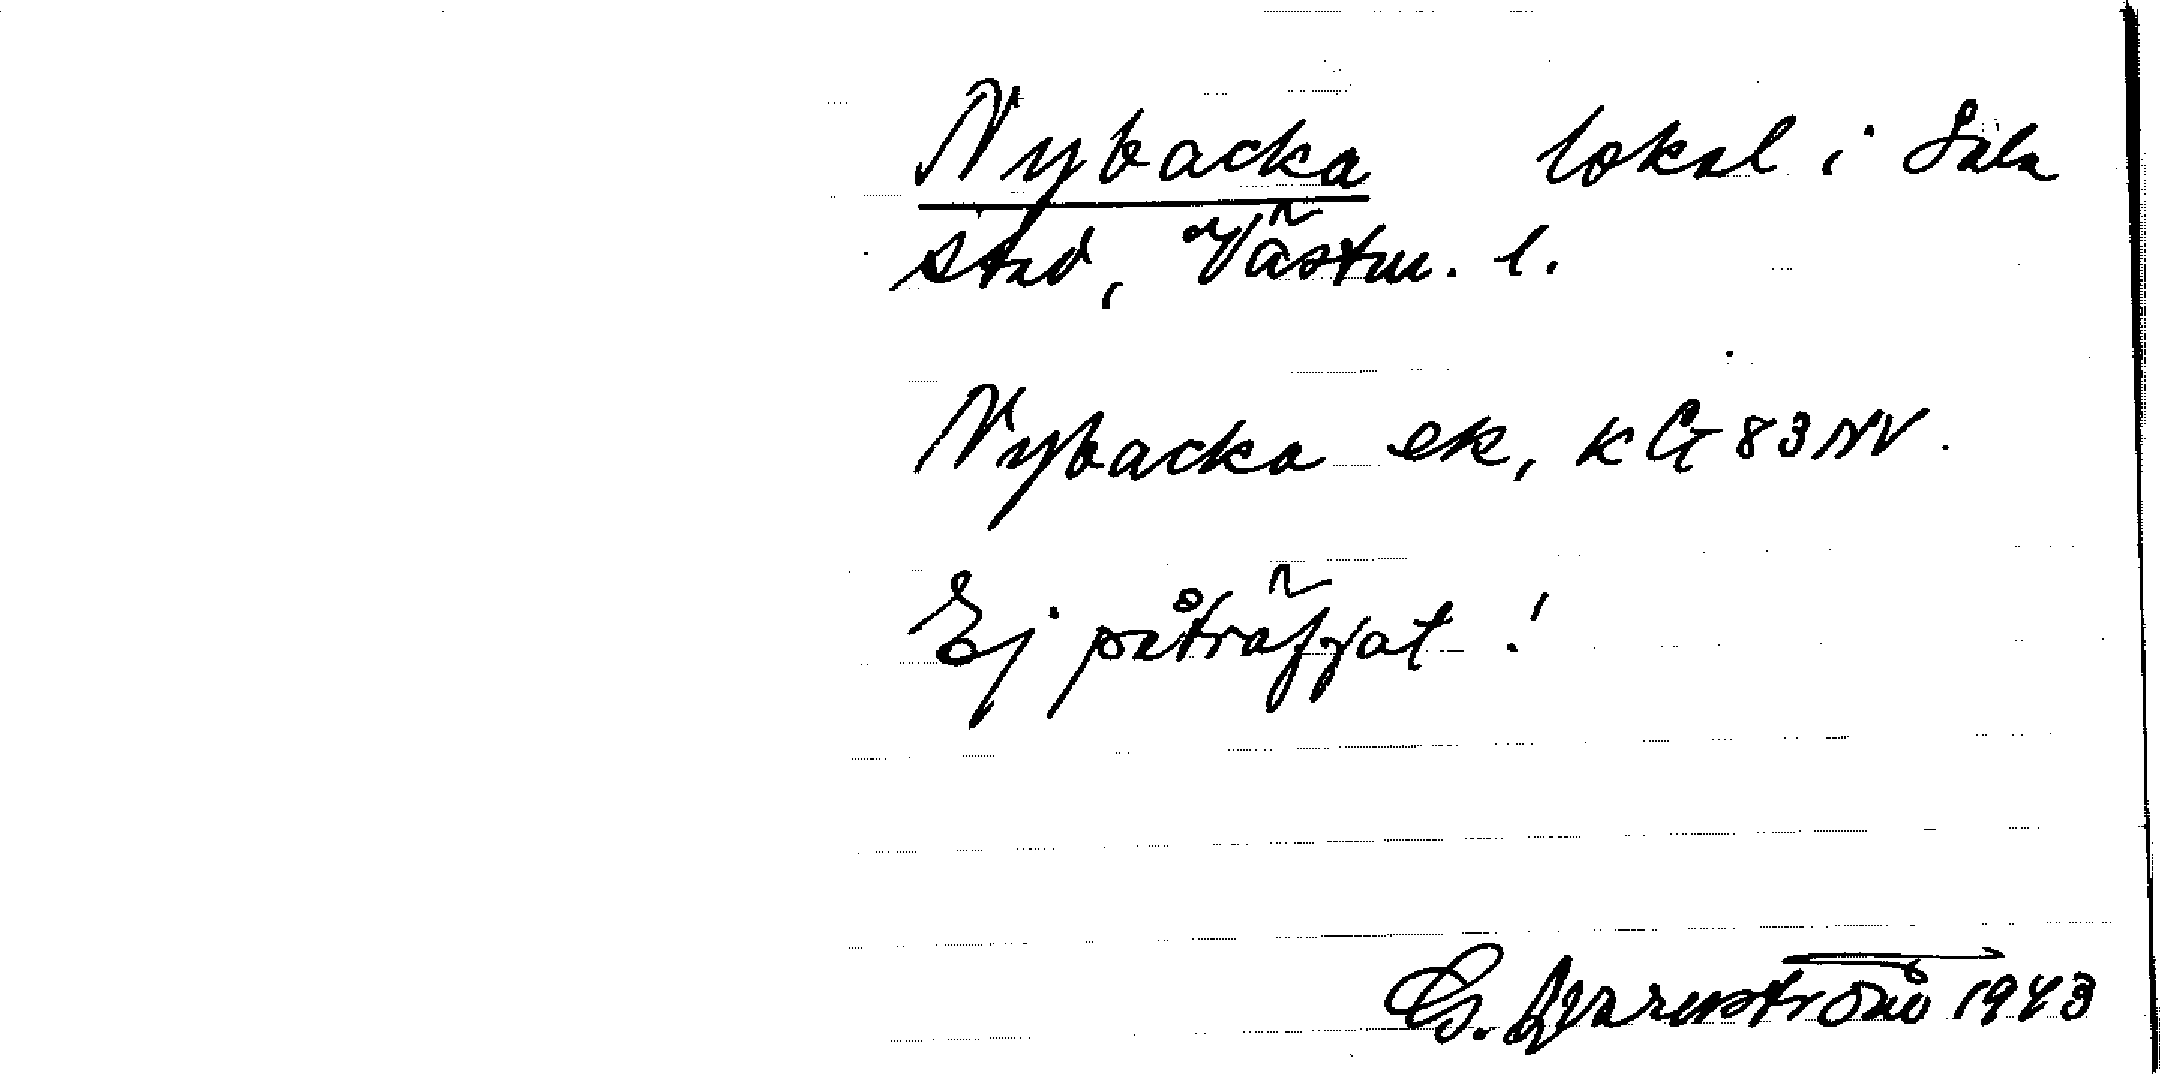 Nybacka lokal i Sala
stad, Västm. l.
Nybacka ek, k G 83 NV.
Ej påträffat!
G. 1943